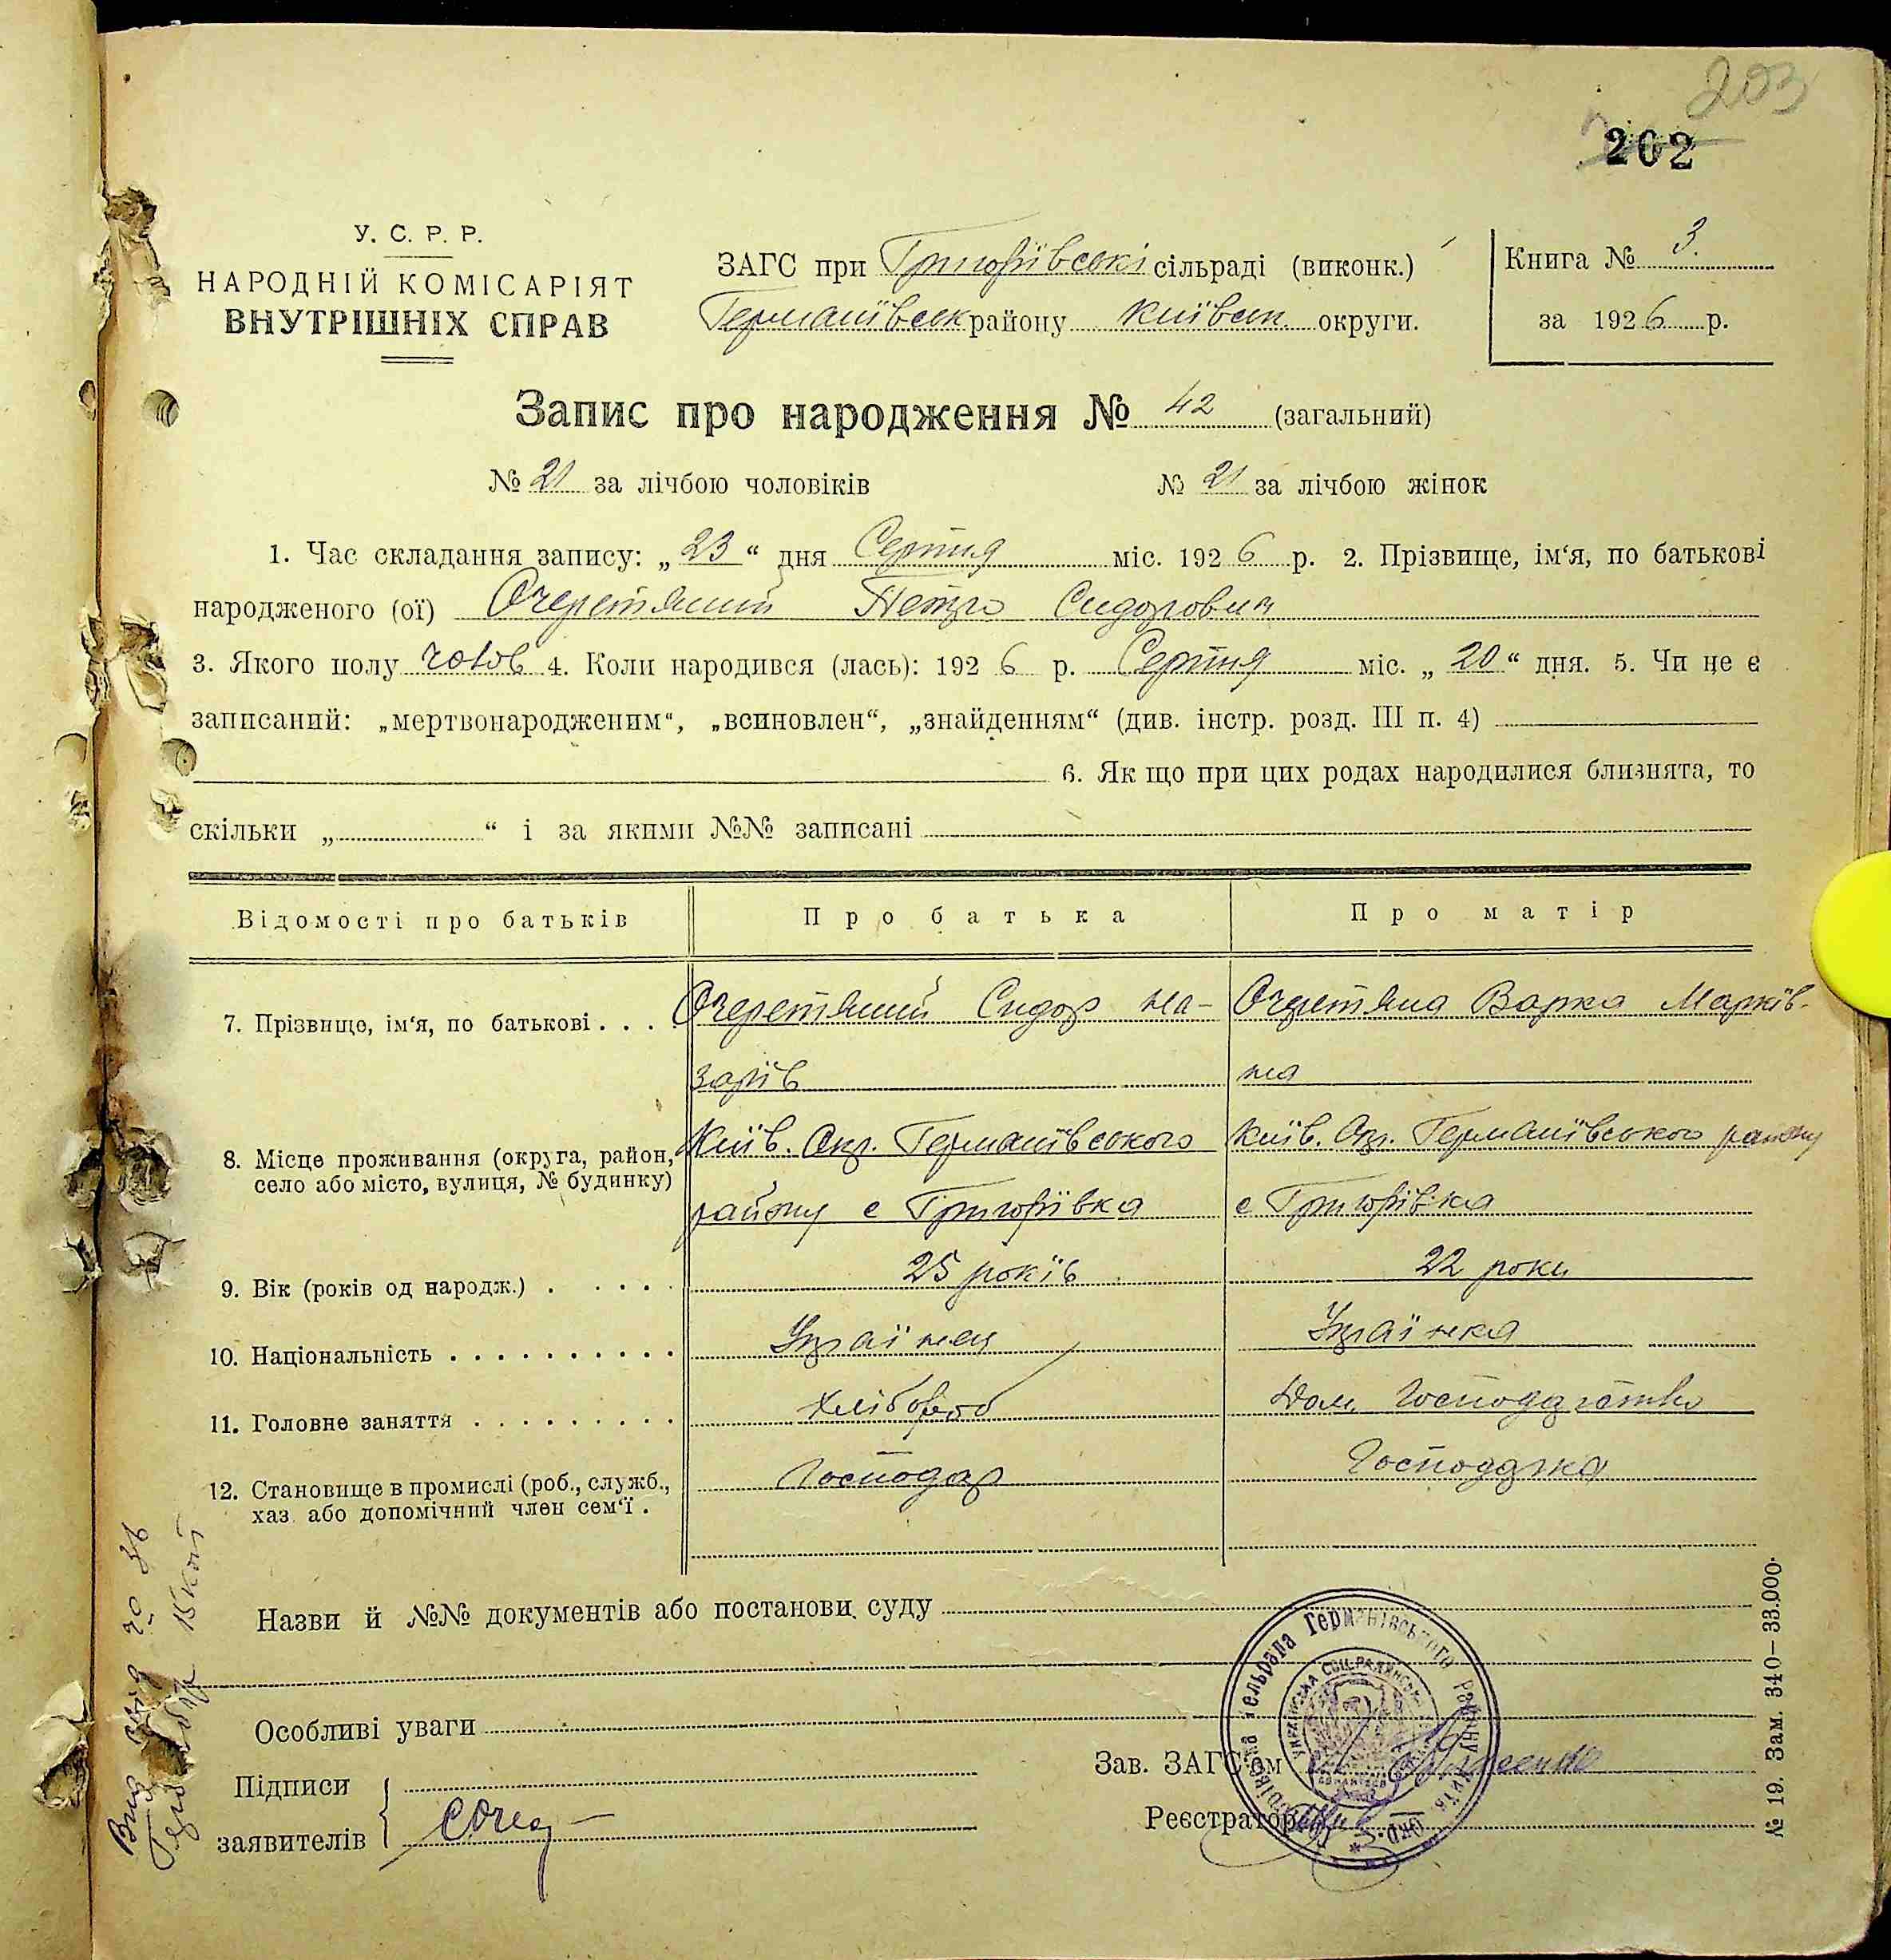 203
202
У. С. Р. Р.
НАРОДНІЙ КОМІСАРІЯТ
ВНУТРІШНІХ СПРАВ
ЗАГС при Григорївські сільраді (виконк.)
Германївськ району Київськ. округи.
Книга № 3.
за 1926 р.
Запис про народження № 42 (загальний)
№ 21 за лічбою чоловіків № 21 за лічбою жінок
1. Час складання запису: „23“ дня Серпня міс. 1926 р. 2. Прізвище, ім‘я, по батькові
народженого (ої) Очеретяний Петро Сидорович
3. Якого полу чолов 4. Коли народився (лась): 1926 р. Серпня міс. „20“ дня. 5. Чи не є
записаний: „мертвонародженим“, „всиновлен“, „знайденням“ (див. інстр. розд. III п. 4)
6. Як що при цих родах народилися близнята, то
скільки „ “ і за якими №№ записані
Відомості про батьків Про батька Про матір
7. Прізвище, ім‘я, по батькові . . . Очеретяний Сидор На- Очеретяна Варка Марків-
зарів на
8. Місце проживання (округа, район, Київ. Окр. Германївського Київ. Окр. Германївського району
село або місто, вулиця, № будинку)
району с Григорївка с Григорївка
9. Вік (років од народж.) . . . . . 25 років 22 роки
10. Національність . . . . . . . . . . Українец Українка
11. Головне заняття . . . . . . . . . Хлібороб Дом. Господарство
12. Становище в промислі (роб., служб., Господар Господарка
хаз. або допомічний член сем‘ї .
Назви й №№ документів або постанови суду
Особливі уваги
Підписи
заявителів
Зав. ЗАГС‘ом
Реєстратор
Германівського Району
№ 19. Зам. 340—33.000.